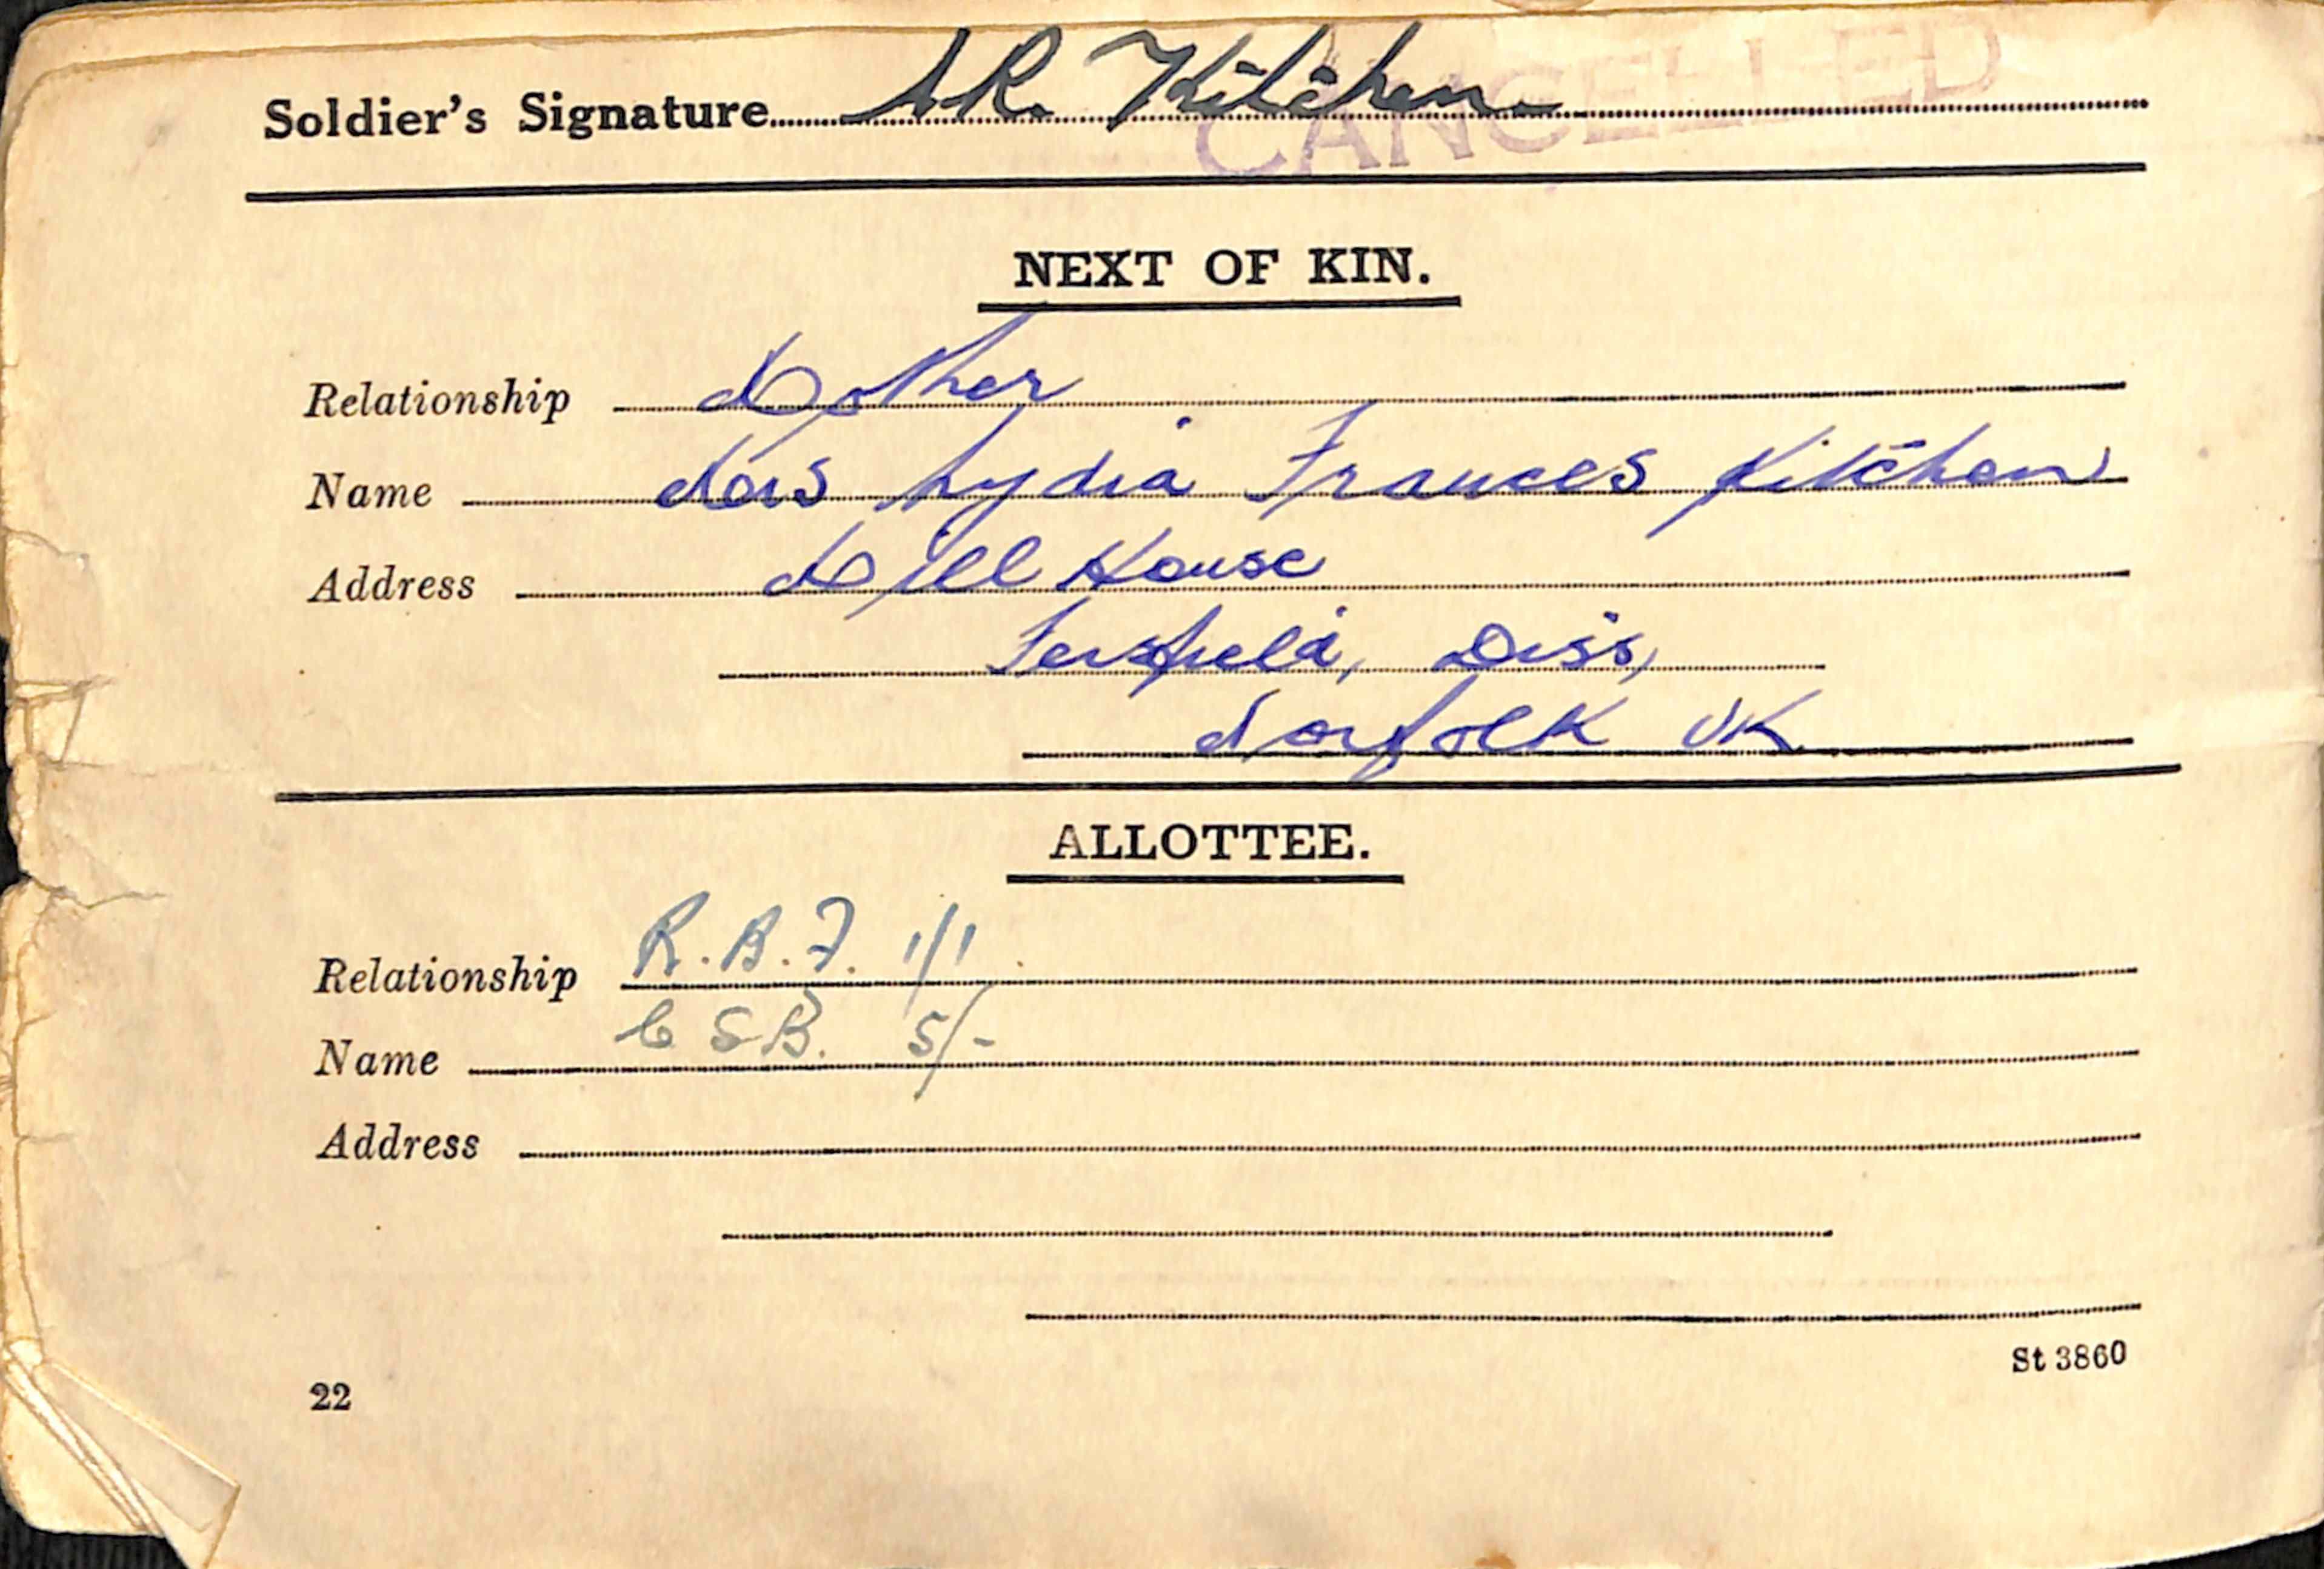 Soldier's Signature A.R. Kitchen.
CANCELLED
NEXT OF KIN.
Relationship Mother
Name Mrs Lydia Frances Kitchen
Address Mill House
Fersfield, Diss,
Norfolk UK
ALLOTTEE.
Relationship R.B.F. 1/1
Name C S B. 5/-
Address
St 3860
22